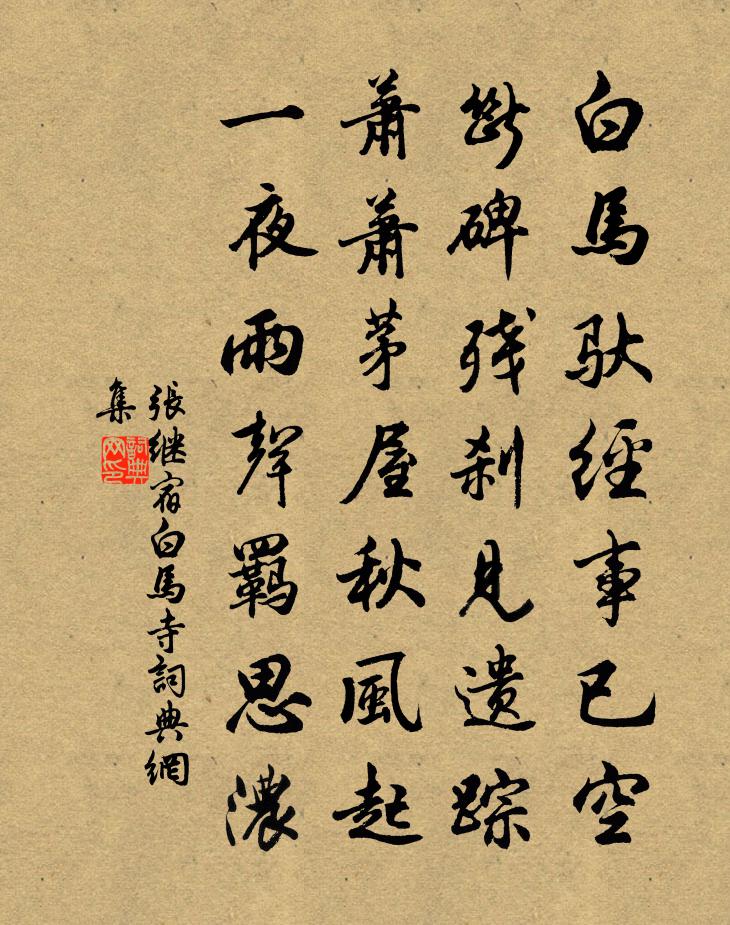 白馬馱經事已空
斷碑残刹見遗踪
蕭蕭茅屋秋風起
一夜雨聲羈思濃
張继宿白馬寺詞典網
集
詞典
网印